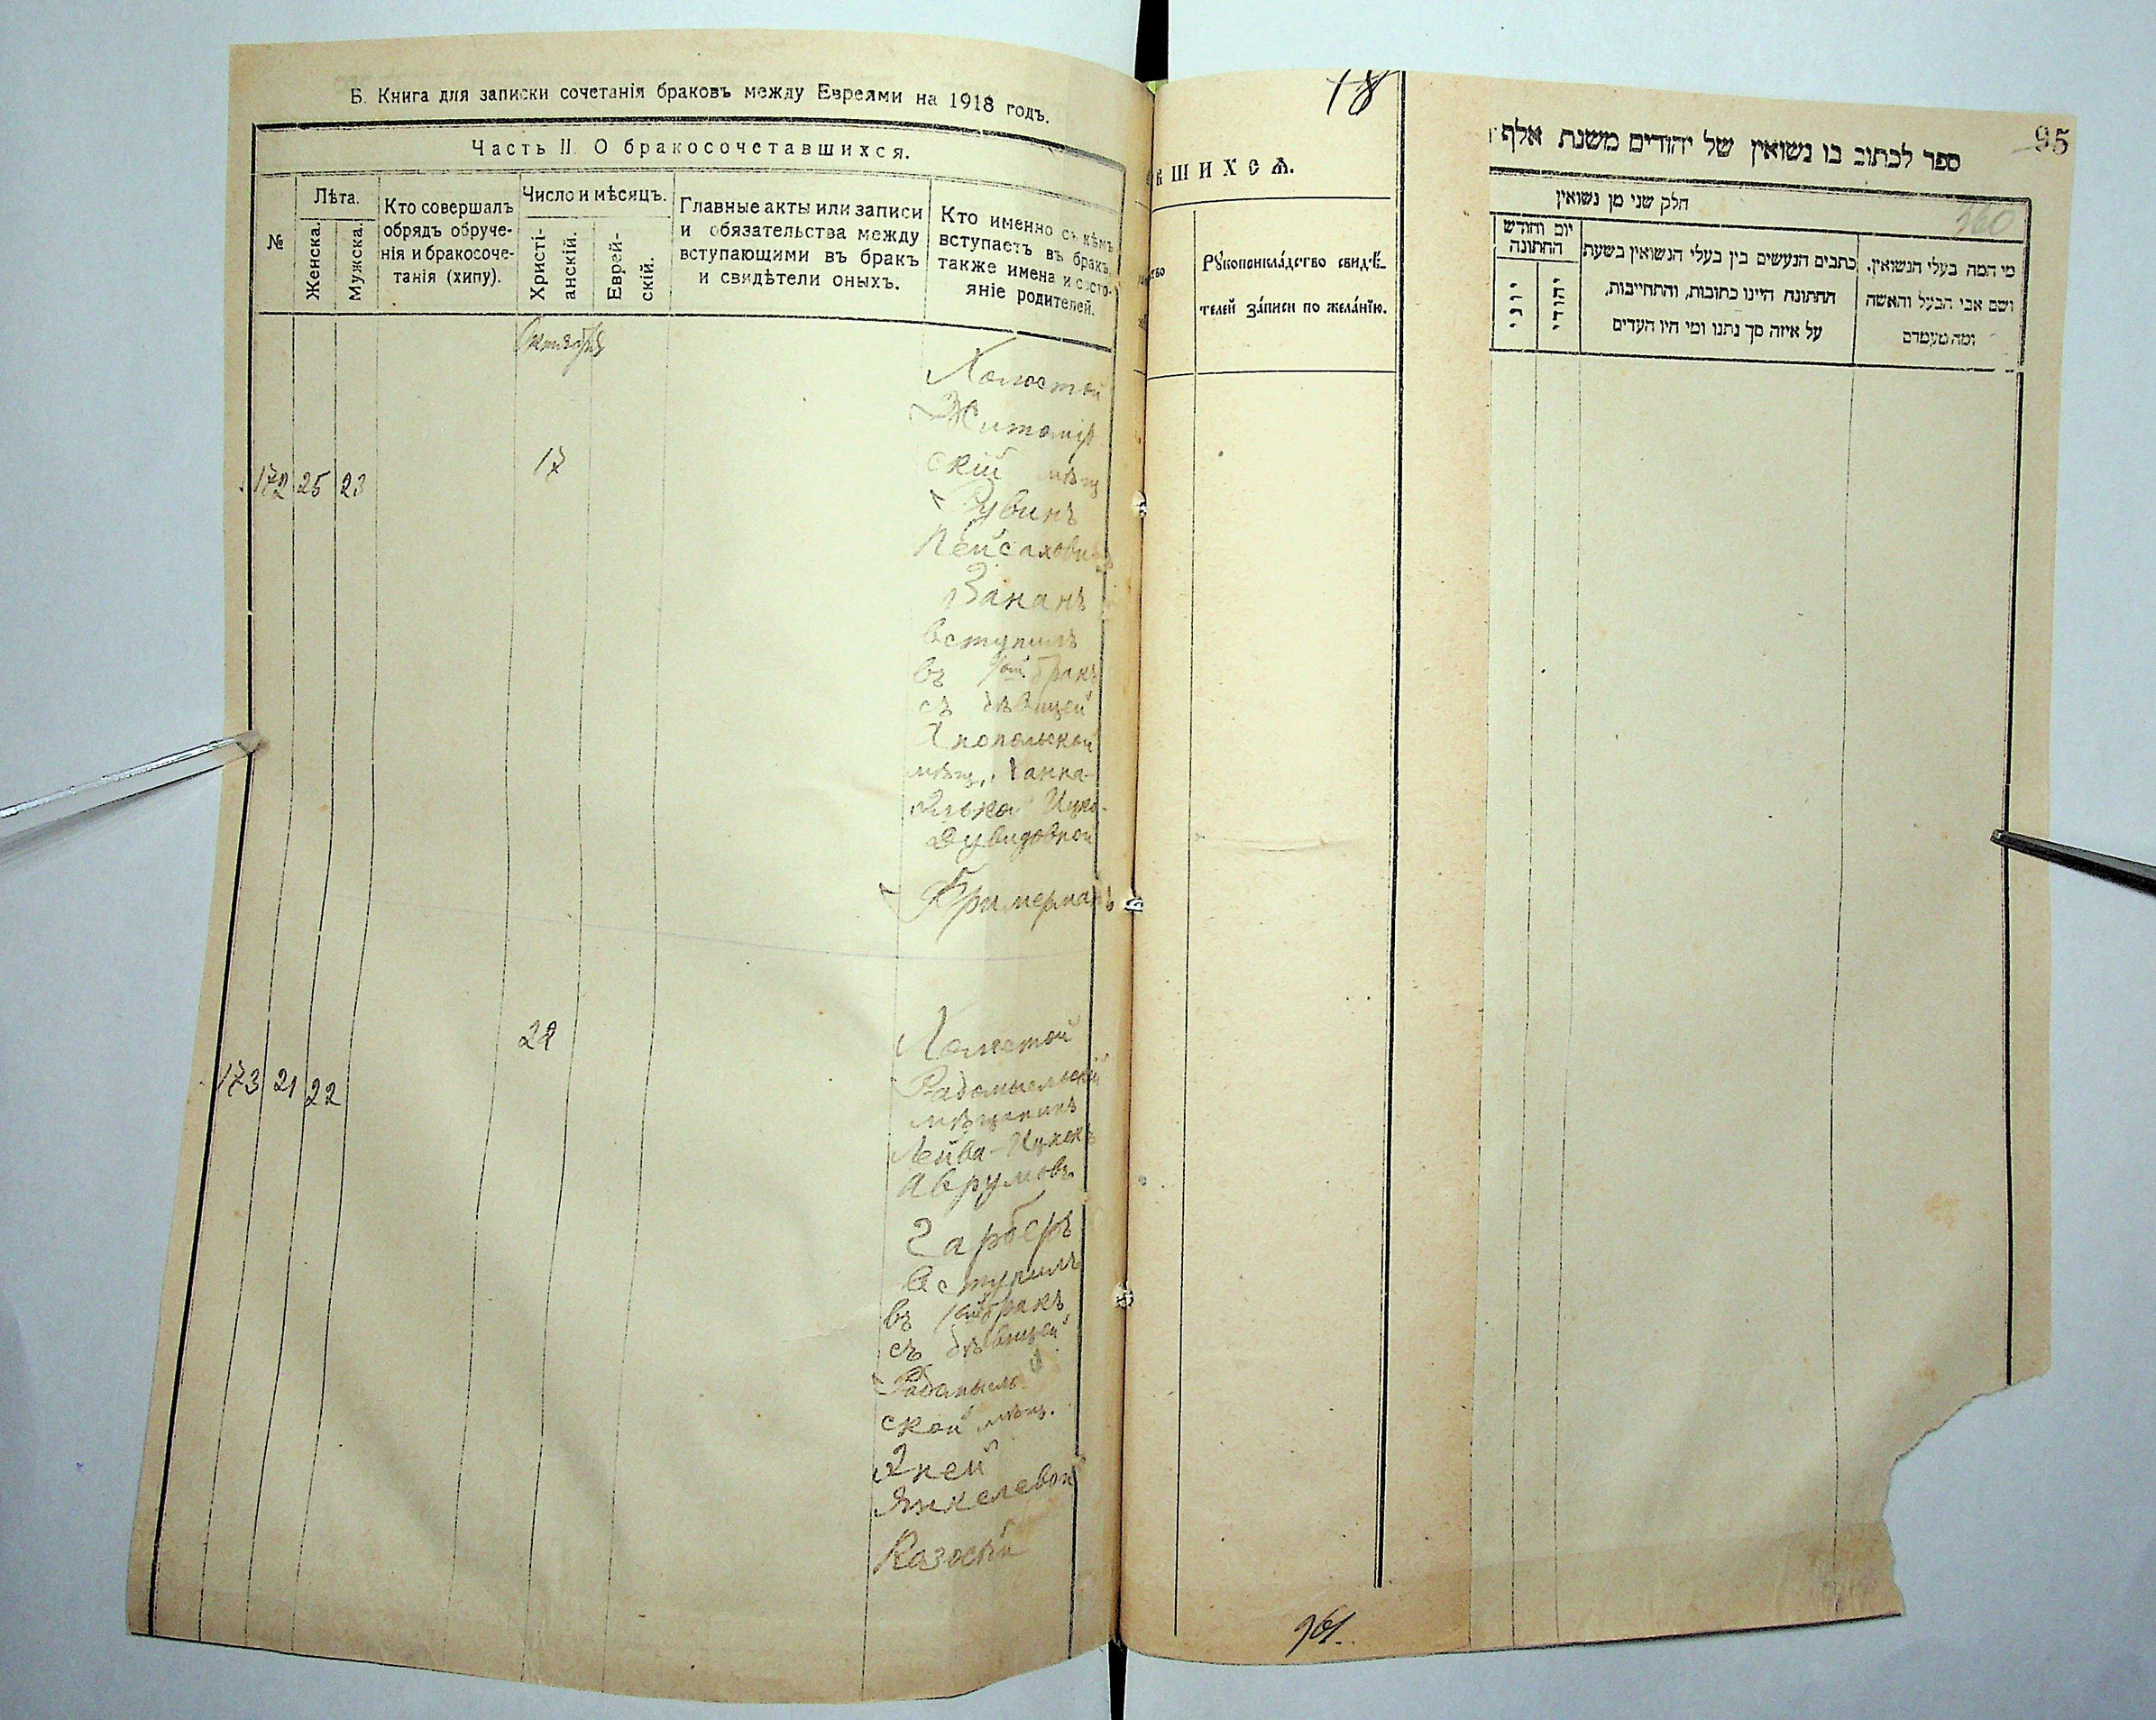 Б. Книга для записки сочетанія браковъ между Евреями на 1918 годъ.
Часть II. О бракосочетавшихся.
№
Лѣта.
Женска.
Мужска.
Кто совершалъ
обрядъ обруче-
нія и бракосоче-
танія (хипу).
Число и мѣсяцъ.
Христі-
анскій.
Еврей-
скій.
Главные акты или записи
и обязательства между
вступающими въ бракъ
и свидѣтели оныхъ.
Кто именно съ кѣмъ
вступаетъ въ бракъ,
также имена и состо-
яніе родителей.
172 25 23
17
Холостой
Житомір
скій мѣщ
Рувинъ
Пейсаховичъ
вступилъ
въ 1ый бракъ
съ дѣвицей
мѣщ. Ханна-
Дувидовной
173 21 22
Холостой
Радомысльскій
мѣщанинъ
Лейба-Ицкокъ
Аврумовъ
Гарберъ
вступилъ
въ 1ый бракъ
съ дѣвицей
Радомысль
ской мѣщ.
Янкелевой
18
вшихся.
Рукоприкладство свидѣ-
телей записи по желанію.
961.
95
960
ספר לכתוב בו נשואין של יהודים משנת אלף
חלק שני מן נשואין
מי המה בעלי הנשואין,
ושם אבי הבעל והאשה
ומה מעמדם
כתבים הנעשים בין בעלי הנשואין בשעת
החתונה היינו כתובות, והתחייבות,
על איזה סך נתנו ומי היו העדים
יום וחודש
החתונה
יהודי
יוני